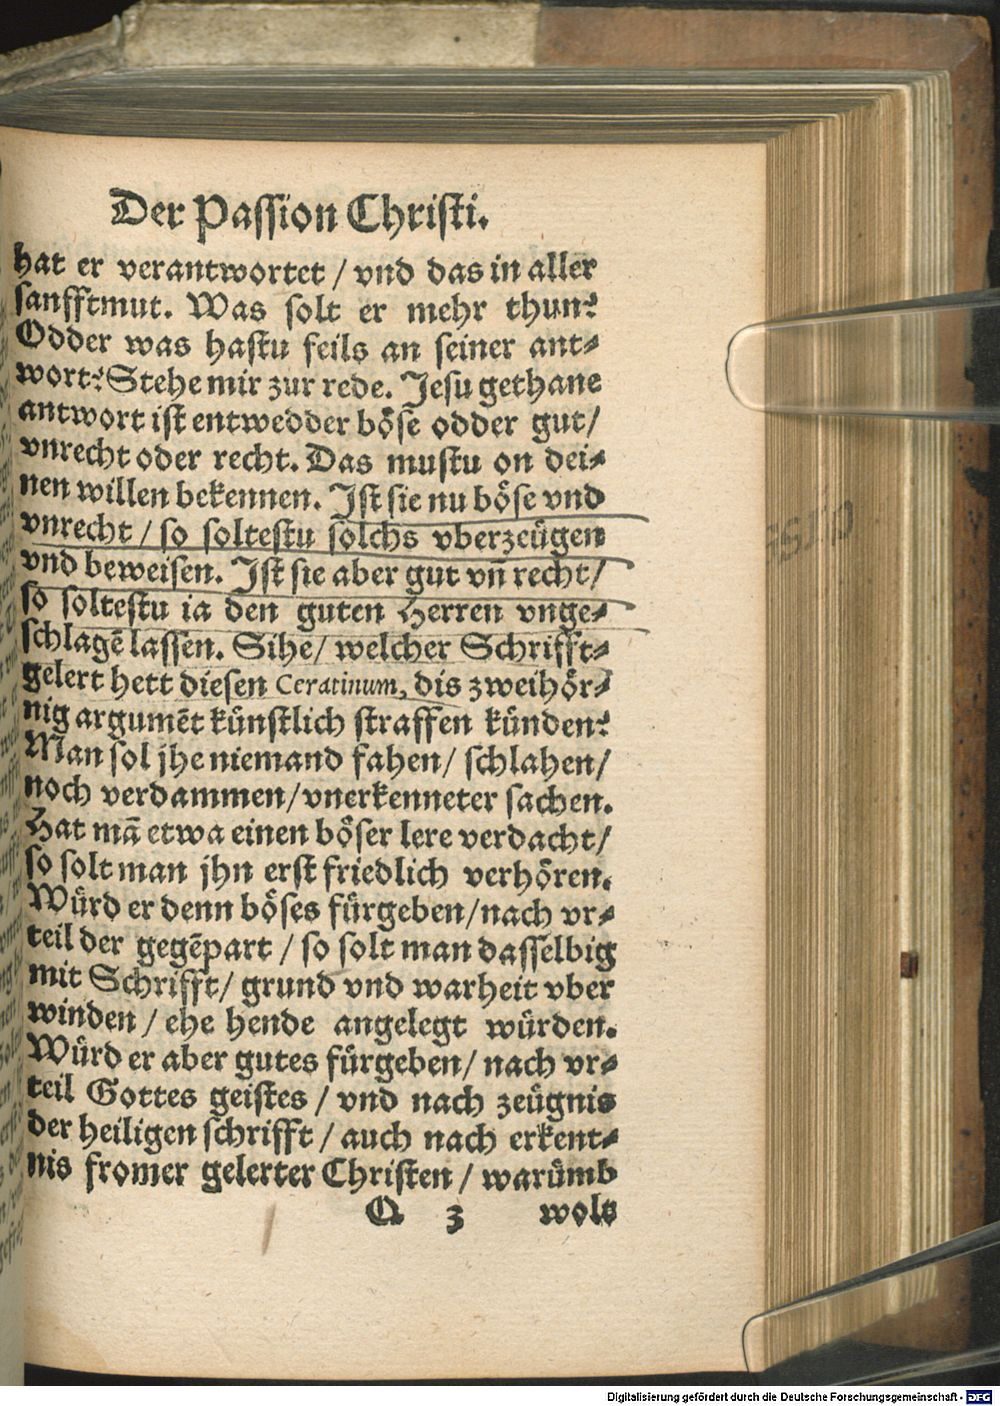 Der Passion Christi.
hat er verantwortet / vnd das in aller
sanfftmut. Was solt er mehr thun?
Odder was hastu feils an seiner ant-
wort? Stehe mir zur rede. Jesu gethane
antwort ist entwedder böse odder gut /
vnrecht oder recht. Das mustu on dei-
nen willen bekennen. Jst sie nu böse vnd
vnrecht / so soltestu solchs vberzeügen
vnd beweisen. Jst sie aber gut vñ recht /
so soltestu ia den guten Herren vnge-
schlagē lassen. Sihe / welcher Schrifft-
gelert hett diesen Ceratinum, dis zweihör-
nig argumēt künstlich straffen künden?
Man sol jhe niemand fahen / schlahen /
noch verdammen / vnerkenneter sachen.
Hat mā etwa einen böser lere verdacht /
so solt man jhn erst friedlich verhören.
Würd er denn böses fürgeben / nach vr-
teil der gegēpart / so solt man dasselbig
mit Schrifft / grund vnd warheit vber
winden / ehe hende angelegt würden.
Würd er aber gutes fürgeben / nach vr-
teil Gottes geistes / vnd nach zeügnis
der heiligen schrifft / auch nach erkent-
nis fromer gelerter Christen / warümb
Q 3 wolt
Digitalisierung gefördert durch die Deutsche Forschungsgemeinschaft - DFG